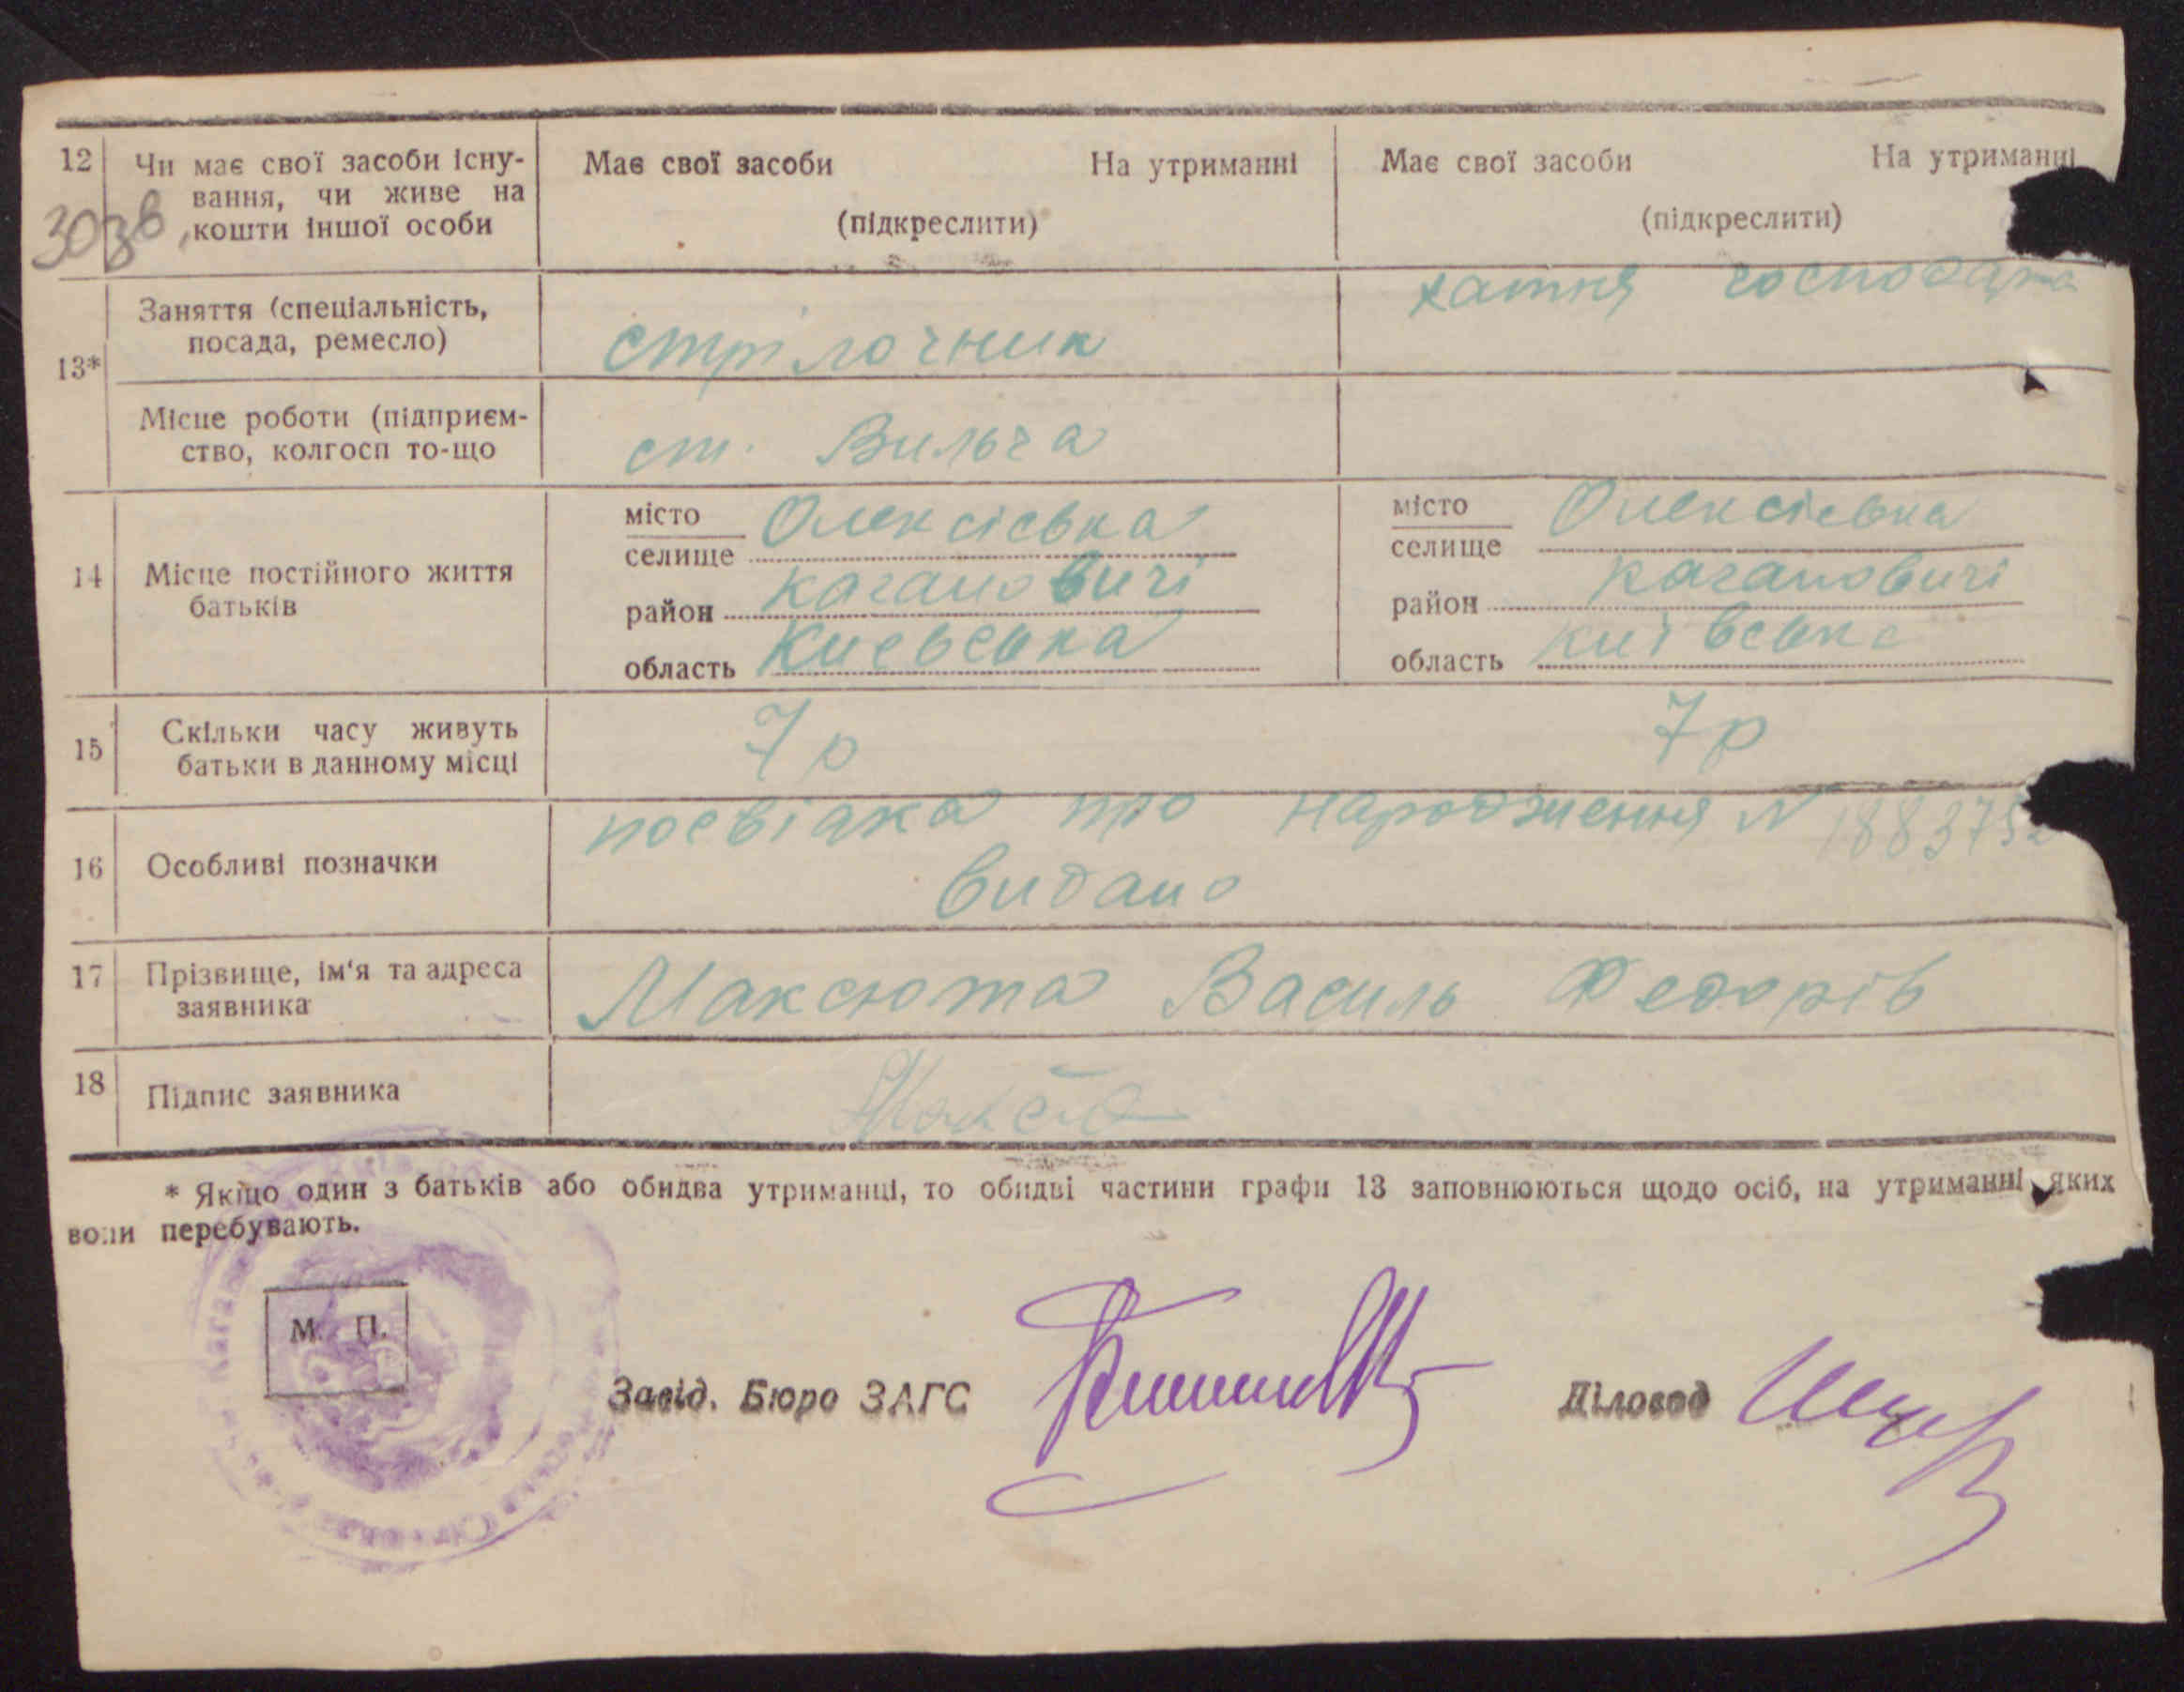 12 Чи має свої засоби існу- Має свої засоби На утриманні Має свої засоби На утриманні
вання, чи живе на
303в кошти іншої особи (підкреслити) (підкреслити)
хатня господарка
Заняття (спеціальність,
посада, ремесло) стрілочник
13*
Місце роботи (підприєм-
ство, колгосп то-що ст. Вильча
місто Олексієвка місто Олексієвка
селище селище
14 Місце постійного життя
батьків район Кагановичі район Кагановичі
область Киевська область Київська
15 Скільки часу живуть 7р 7р
батьки в данному місці
посвідка про народження N 188375
16 Особливі позначки
видано
17 Прізвище, ім'я та адреса Максюта Василь Федорів
заявника
18 Підпис заявника
* Якщо один з батьків або обидва утриманці, то обидві частини графи 13 заповнюються щодо осіб, на утриманні яких
вони перебувають.
М. П.
Завід. Бюро ЗАГС Діловод